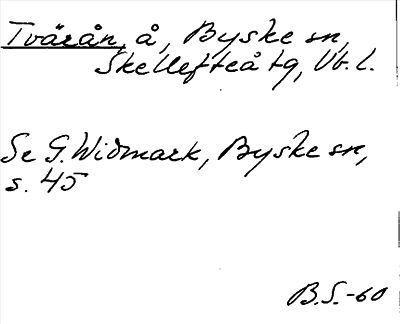 Tvärån, å, Byske sn,
Skellefteå tg, Vb. l.
Se G. Widmark, Byske sn,
s. 45
B.S.-60